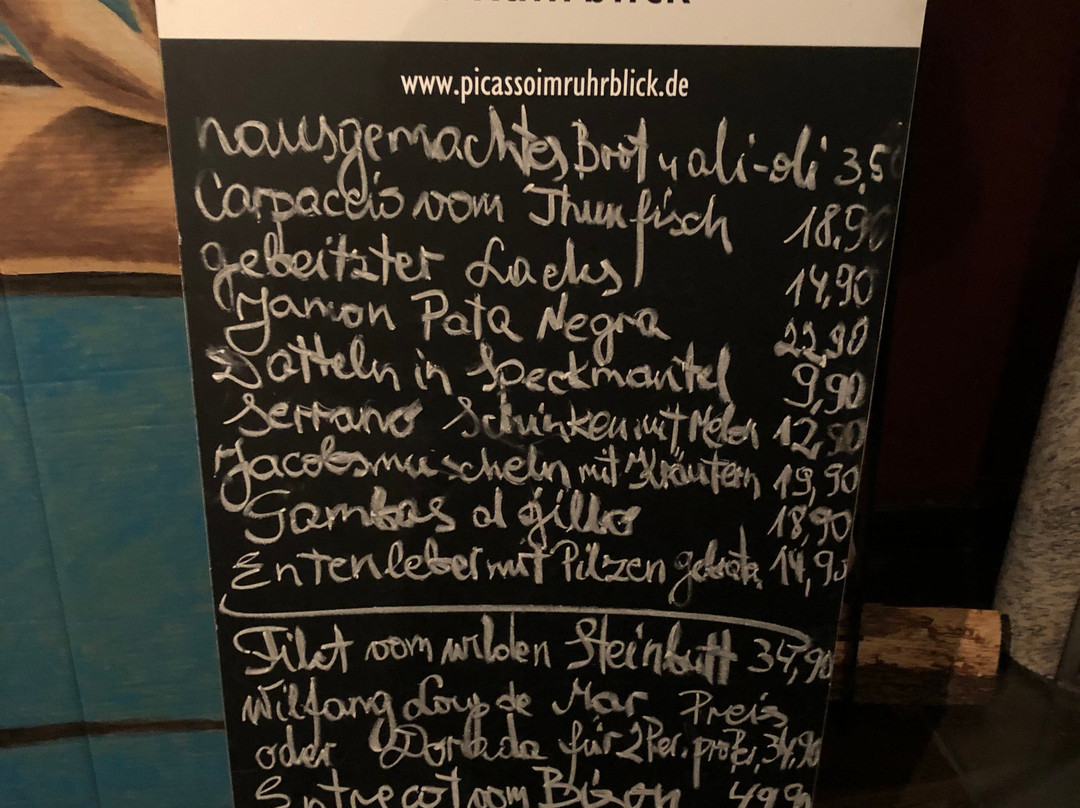 www.picassoimruhrblick.de
hausgemachtes Brot u ali-oli 3,50
Carpaccio vom Thunfisch 18,90
gebeitzter Lachs 14,90
Jamon Pata Negra 22,90
Datteln in Speckmantel 9,90
Serrano Schinken mit Melon 12,90
Jacobsmuscheln mit Kräutern 19,90
Gambas al gillo 18,90
Entenleber mit Pilzen 14,90
Filet vom wilden Steinbutt 34,90
Wilfang Loup de Mar Preis
oder Dorada für 2 Per. pro P, 34,90
Entrecot vom Bison